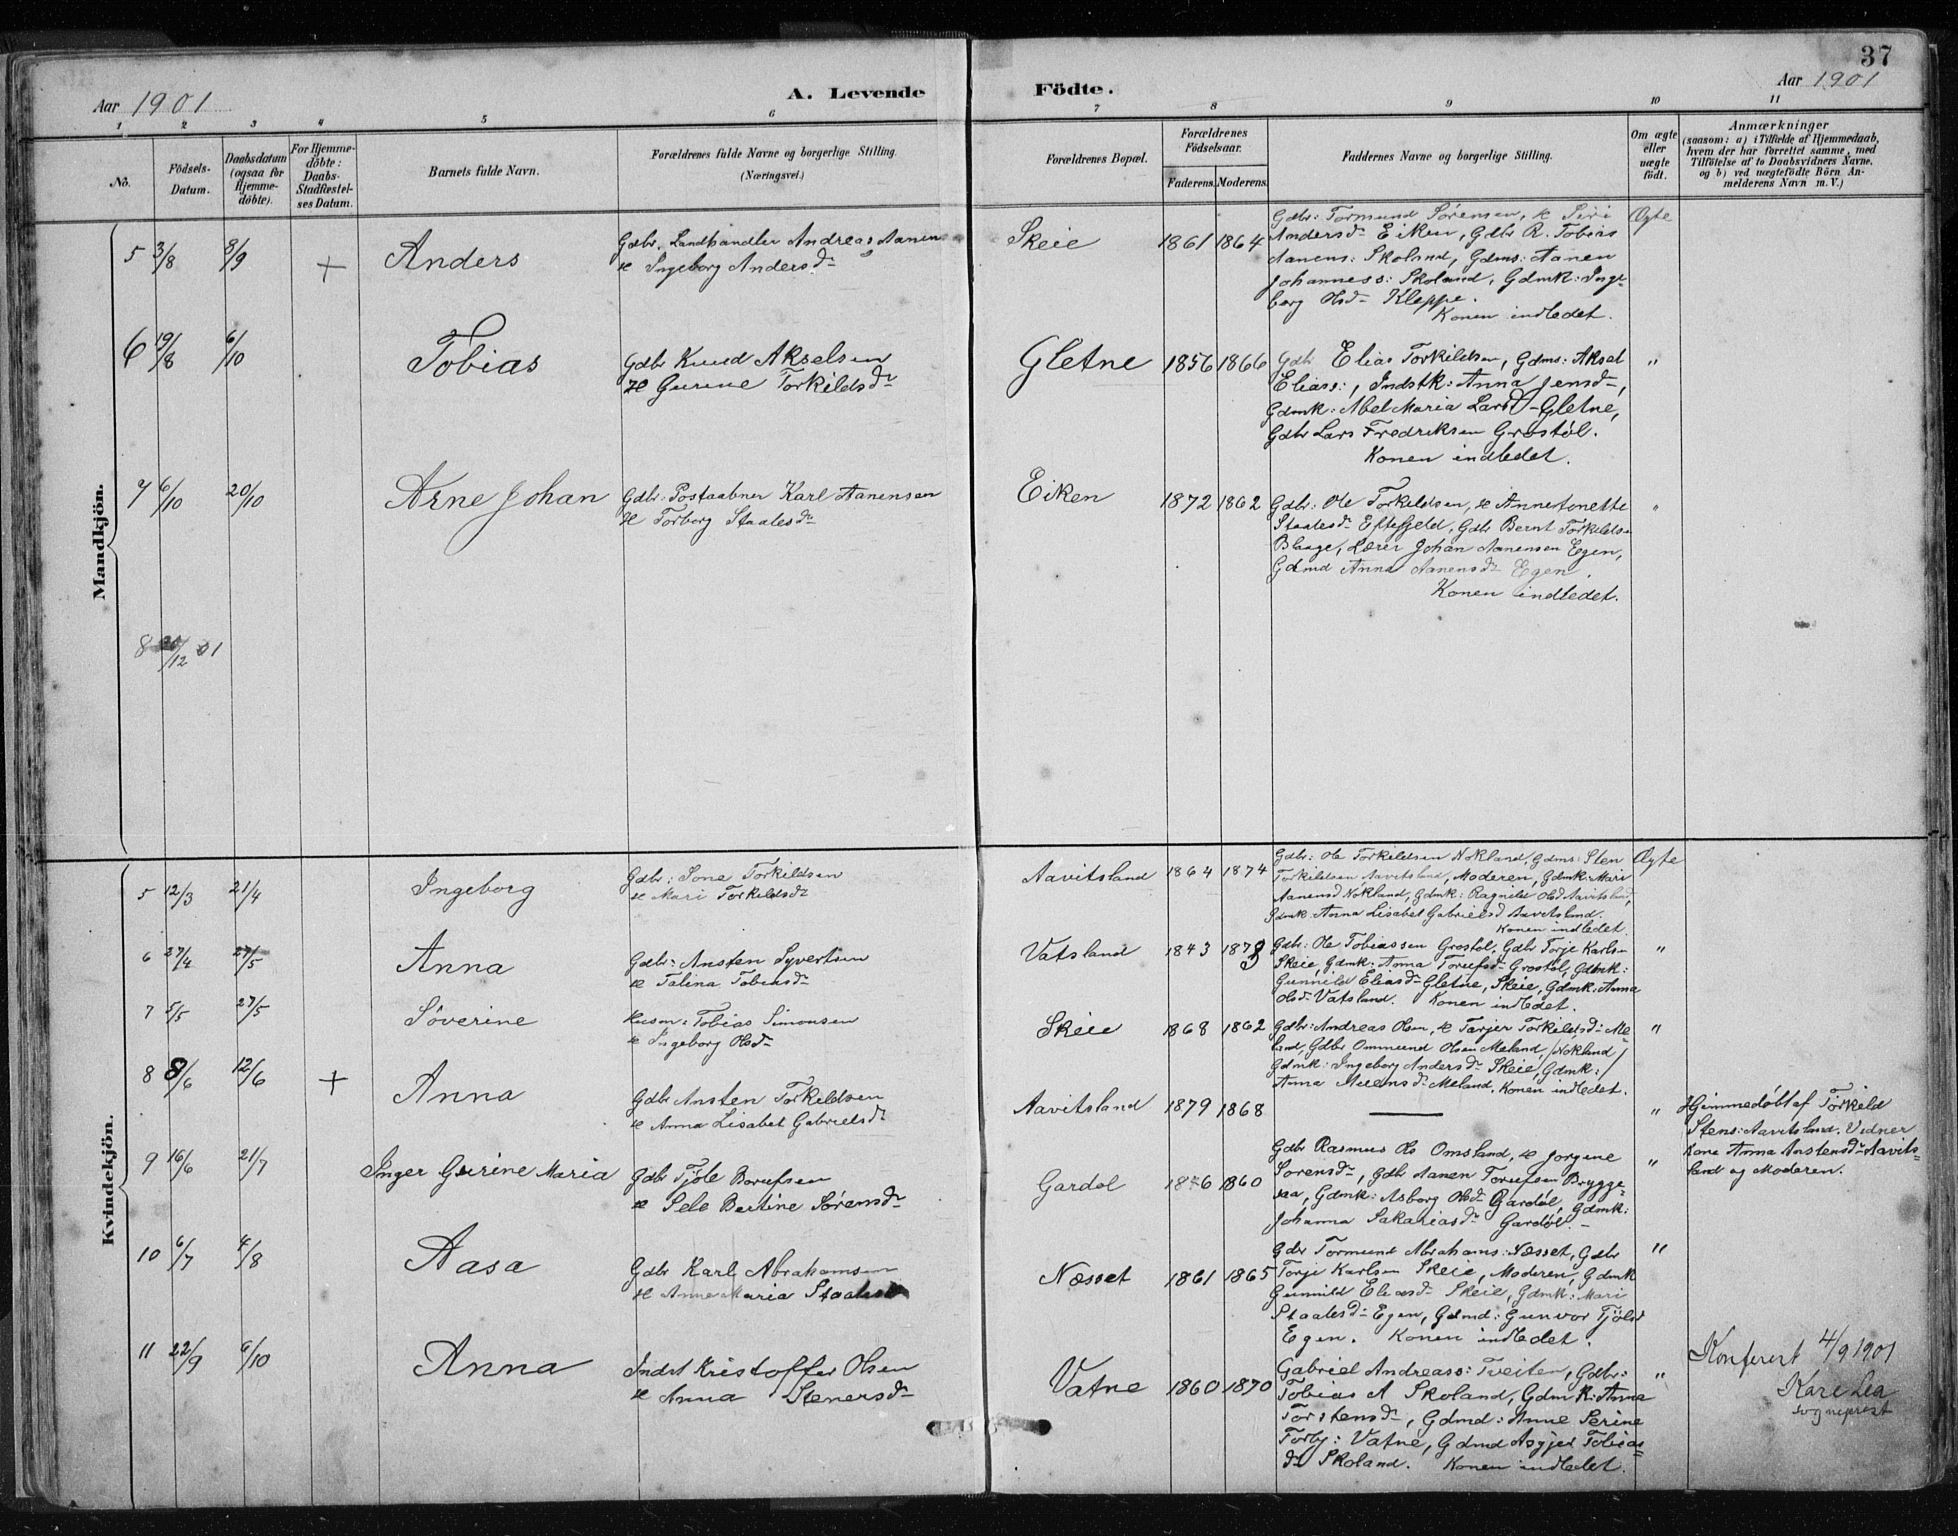 37
Aar 1901
A. Levende
Födte.
Aar 1901
1 2 3 4 5 6 7 8 9 10 11
No.
Födsels-
Datum.
Daabsdatum
(ogsaa for
Hjemme-
döbte).
For Hjemme-
döbte:
Daabs-
Stadfæstel-
ses Datum.
Barnets fulde Navn.
Forældrenes fulde Navne og borgerlige Stilling.
(Næringsvei.)
Forældrenes Bopæl.
Forældrenes
Födselsaar.
Faderens. Moderens.
Faddernes Navne og borgerlige Stilling.
Om ægte
eller
uægte
födt.
Anmærkninger
(saasom: a) i Tilfælde af Hjemmedaab,
hvem der har forrettet samme, med
Tilföielse af to Daabsvidners Navne,
og b) ved uægtefödte Börn An-
melderens Navn m. V.)
Mandkjön.
5 3/8 8/9 + Anders
Gdbr. Landhandler Andreas Aanen
& Ingeborg Andersdr
Skeie 1861 1864
Gdbr: Tormund Sörensen, & Siri
Andersdr Eiken, Gdbr R. Tobias
Aanens: Skoland, Gdms: Aanen
Johanness: Skoland, Gdmk: Inge-
borg Olsdr Kleppe.
Konen indledet.
Ægte
6 19/8 6/10 Tobias
Gdbr Knud Akselsen
& Gurine Torkildsdr
Gletne 1856 1866
Gdbr Elias Torkildsen, Gdms: Aksel
Eliass:, Indstk: Anna Jensdr,
Gdmk: Abel Maria Larsd-Gletne,
Gdbr Lars Fredriksen Grostöl.
Konen indledet.
"
7 6/10 20/10 Arne Johan
Gdbr: Postaabner Karl Aanensen
& Torborg Staalesdr
Eiken 1872 1862
Gdbr: Ole Torkildsen, & Annetonette
Staalesdr Eftefjeld, Gdbr Bernt Torkildsen
Blaage, Lærer Johan Aanensen Egen,
Gdmd Anna Aanensdr Egen.
Konen indledet.
"
8 /12 01
Kvindekjön.
5 12/3 21/4 Ingeborg
Gdbr: Sone Torkildsen
& Mari Torkildsdr
Aavitsland 1864 1874
Gdbr: Ole Torkildsen Nokland, Gdms: Sten
Torkildsen Aavitsland, Moderen, Gdmk: Mari
Aanensd Nokland, Gdmk: Ragnild Olsd Aavitsland,
Gdmk: Anna Lisabet Gabrielsd Aavitsland.
Konen indledet.
Ægte
6 27/4 27/5 Anna
Gdbr: Ansten Syvertsen
& Talina Tobiasdr
Vatsland 1843 1873
Gdbr: Ole Tobiassen Grostöl, Gdbr Torje Karlsen
Skeie, Gdmk: Anna Torufsdr Grostöl, Gdmk:
Gunnild Eliasdr Gletne, Skeie, Gdmk: Anna
Olsdr Vatsland. Konen indledet.
"
7 5/5 27/5 Söverine
Husm: Tobias Simonsen
& Ingeborg Olsdr
Skeie 1868 1862
Gdbr: Andreas Olsen, & Tarjer Torkildsdr Me-
land, Gdbr Ommund Olsen Meland, /Nokland/
Gdmk: Ingeborg Andersdr Skeie, Gdmk:
Anna Meland. Konen indledet.
"
8 8/6 12/6 + Anna
Gdbr Ansten Torkildsen
& Anna Lisabet Gabrielsdr
Aavitsland 1879 1868
—
"
Hjemmedöbt af Torkild
Stens: Aavitsland. Vidner
Kone Anna Anstensdr Aavits-
land og Moderen.
9 16/6 21/7 Inger Gurine Maria
Gdbr Tjöle Borufsen
& Sele Bertine Sörensdr
Gardöl 1876 1860
Gdbr Rasmus Ols Omsland, & Jorgine
Sorensdr, Gdbr Aanen Torufsen Brygge-
saa, Gdmk: Asborg Olsdr Gardöl, Gdmk:
Johanna Sakariasdr Gardöl.
"
10 6/7 4/8 Aasa
Gdbr Karl Abrahamsen
& Anne Maria Staalesd
Næsset 1861 1865
Gdbr Tormund Abrahams: Næsset, Gdbr
Torje Karlsen Skeie, Moderen, Gdmk
Gunnild Eliasdr Skeie, Gdmk: Mari
Staalesdr Egen, Gdmd: Gunvor Tjölsd
Egen. Konen indledet.
"
11 22/9 6/10 Anna
Indst Kristoffer Olsen
& Anna Stenersdr
Vatne 1860 1870
Gabriel Andreass: Tveiten, Gdbr:
Tobias A Skoland, Gdmk: Anna
Torstensdr, Gdmd: Anne Serine
Torbj: Vatne, Gdmd Asgjer Tobias-
dr Skoland. Konen indledet.
"
Konferert 4/9 1901
Kare Lea
sogneprest